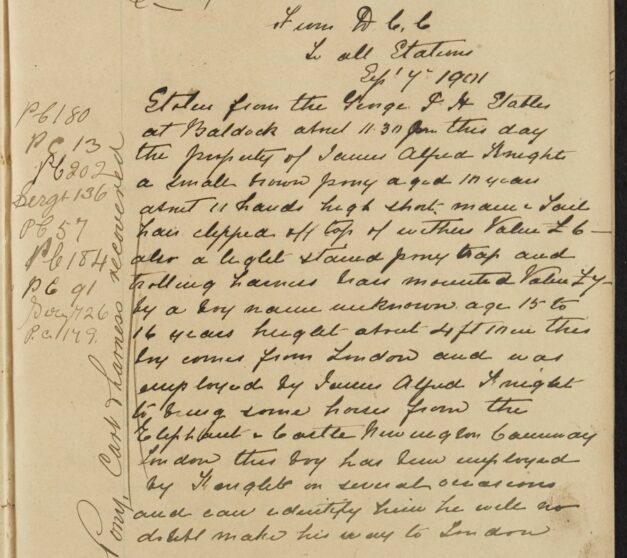 From D C C
To all Stations
Sept 7th 1901
Stolen from the George P H Stables
at Baldock about 11.30 pm this day
the property of James Alfred Knight
a small brown pony aged 10 years
about 11 hands high short mane & tail
hair clipped off top of withers Value £6 —
also a light stained pony trap and
trotting harness brass mounted Value £7 —
by a boy name unknown age 15 to
16 years height about 4 ft 10 in this
boy comes from London and was
employed by James Alfred Knight
to bring some horses from the
Elephant & Castle Newington Causeway
London this boy has been employed
by Knight on several occasions
and can identify him he will no
doubt make his way to London
PC 180
PC 13
PC 202
Sergt 136
PC 57
PC 184
PC 91
Serg 726
P.c. 179.
Pony, Cart & harness recovered